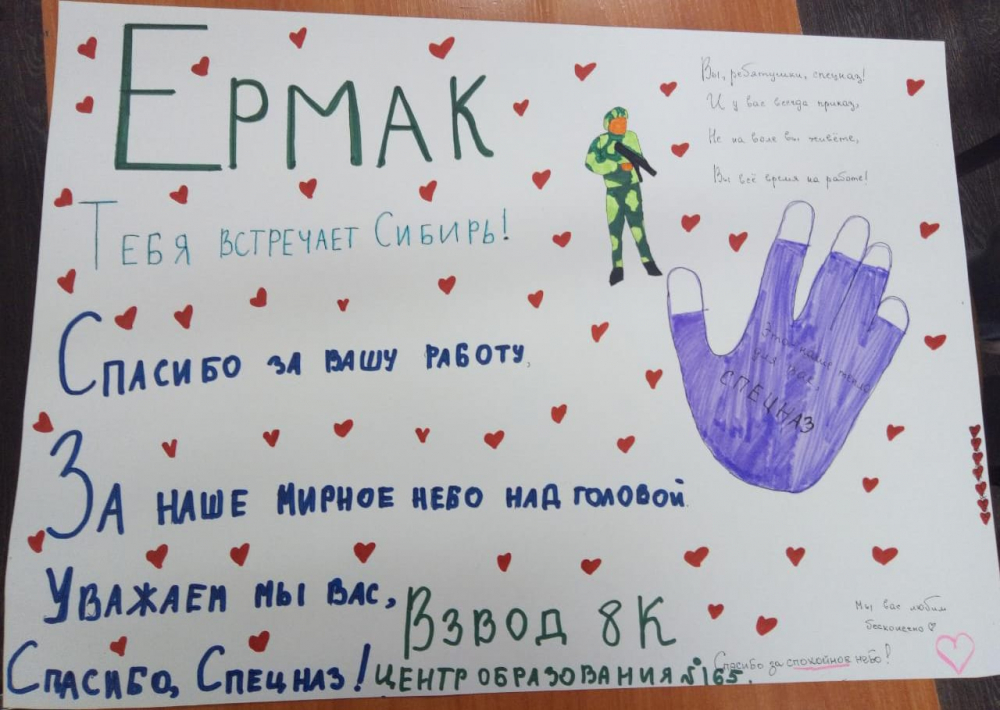 ЕРМАК
ТЕБЯ ВСТРЕЧАЕТ СИБИРЬ!
СПАСИБО ЗА ВАШУ РАБОТУ,
ЗА НАШЕ МИРНОЕ НЕБО НАД ГОЛОВОЙ.
УВАЖАЕМ МЫ ВАС,
СПАСИБО, СПЕЦНАЗ!
ВЗВОД 8К
ЦЕНТР ОБРАЗОВАНИЯ №165.
Вы, ребятушки, спецназ!
И у вас всегда приказ,
Не на воле вы живёте,
Вы всё время на работе!
Это наше тепло
для вас,
СПЕЦНАЗ
Мы вас любим
бесконечно
Спасибо за спокойное небо!